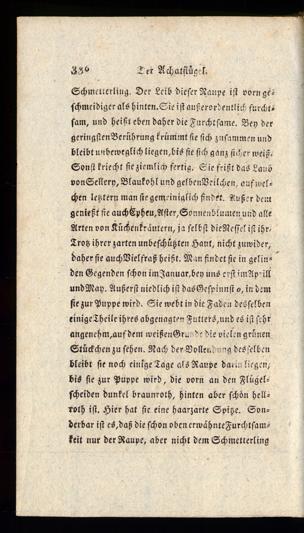 336 Der Achatflügel.
Schmetterling. Der Leib dieser Raupe ist vorn ge-
schmeidiger als hinten. Sie ist außerordentlich furcht-
sam, und heist eben daher die Furchtsame. Bey der
geringsten Berührung krümmt sie sich zusammen und
bleibt unbeweglich liegen, bis sie sich ganz sicher weiß.
Sonst kriecht sie ziemlich fertig. Sie frißt das Laub
von Sellery, Blaukohl und gelben Veilchen, auf wel-
chen letztern man sie gemeiniglich findet. Außer dem
genießt sie auch Epheu, Aster, Sonnenblumen und alle
Arten von Küchenkräutern, ja selbst die Nessel ist ihr,
Trotz ihrer zarten unbeschützten Haut, nicht zuwider,
daher sie auch Vielfraß heißt. Man findet sie in gelin-
den Gegenden schon im Januar, bey uns erst im April
und May. Äußerst niedlich ist das Gespinnst, in dem
sie zur Puppe wird. Sie webt in die Faden desselben
einige Theile ihres abgenagten Futters, und es ist sehr
angenehm, auf dem weißen Grunde die vielen grünen
Stückchen zu sehen. Nach der Vollendung desselben
bleibt sie noch einige Tage als Raupe darin liegen,
bis sie zur Puppe wird, die vorn an den Flügel-
scheiden dunkel braunroth, hinten aber schön hell-
roth ist. Hier hat sie eine haarzarte Spitze. Son-
derbar ist es, daß die schon oben erwähnte Furchtsam-
keit nur der Raupe, aber nicht dem Schmetterling